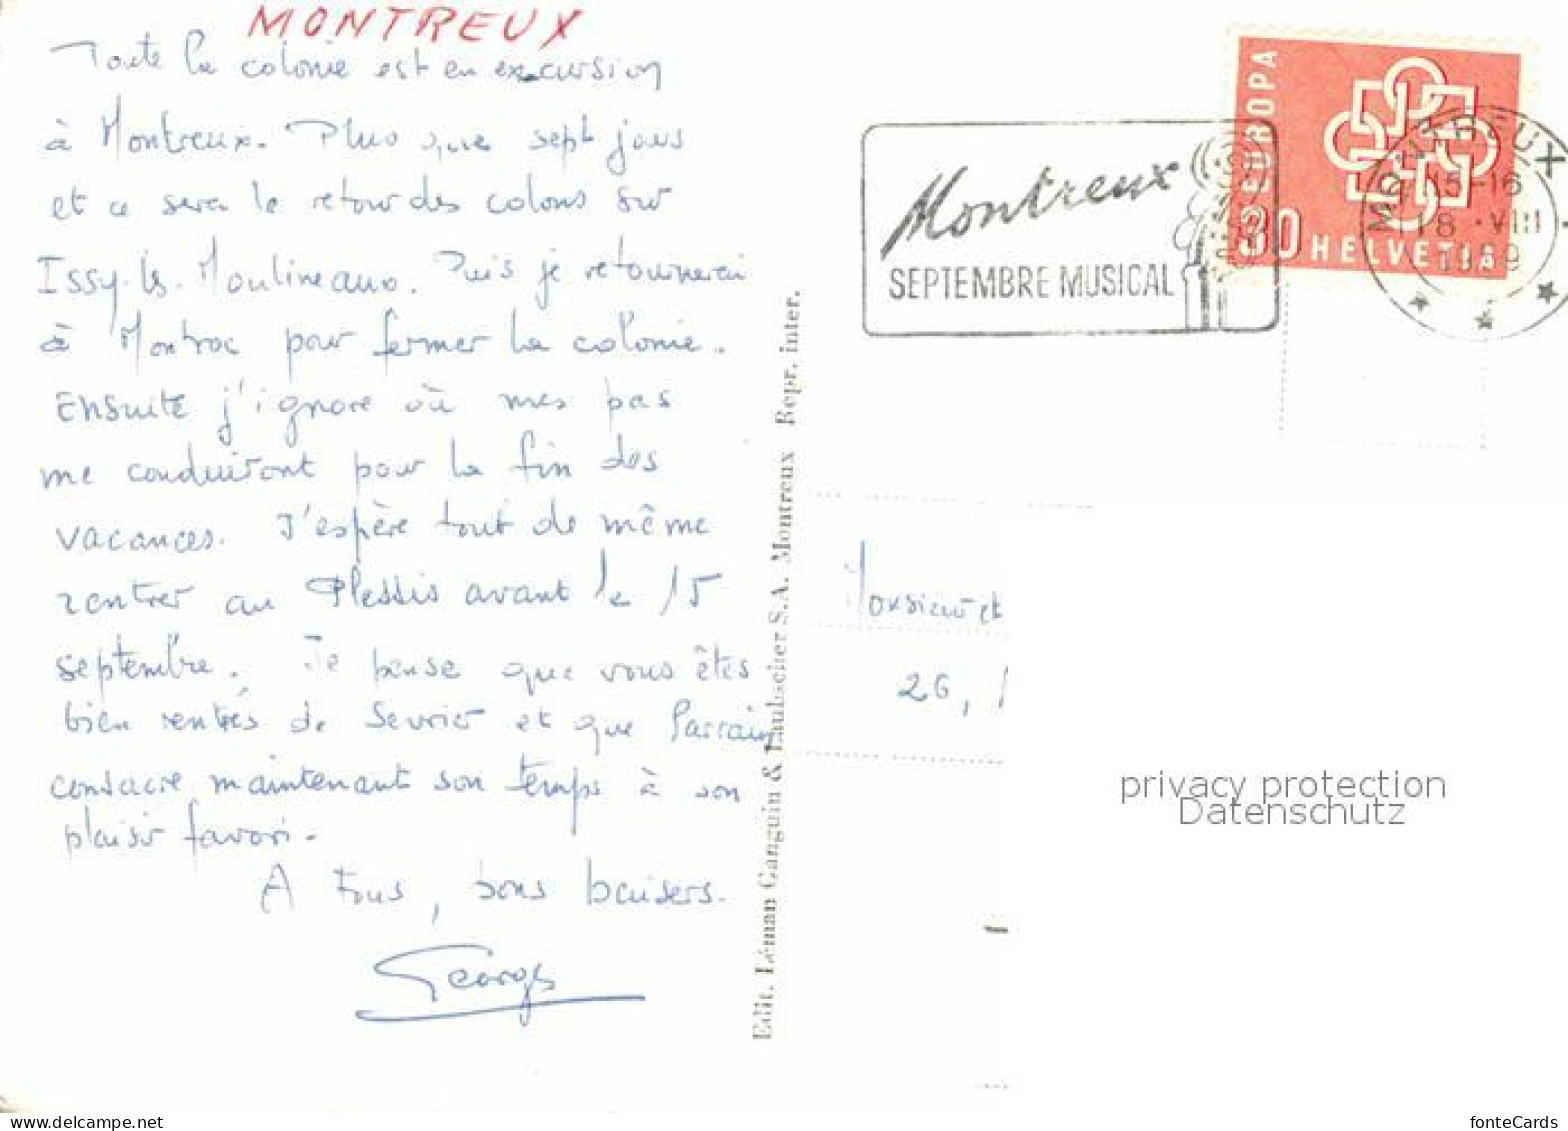 MONTREUX
Toute la colonie est en excursion
à Montreux. Plus que sept jours
et ce sera le retour des colons sur
Issy-ls-Moulineaux. Puis je retournerai
à Montroc pour fermer la colonie.
Ensuite j'ignore où mes pas
me conduiront pour la fin des
vacances. J'espère tout de même
rentrer au Plessis avant le 15
septembre. Je pense que vous êtes
bien rentrés de Sevrier et que Parrain
consacre maintenant son temps à son
plaisir favori.
A tous, bons baisers.
Georges
Edit. Léman Ganguin & Laubscher S.A. Montreux Repr. inter.
Montreux
SEPTEMBRE MUSICAL
EUROPA
30 HELVETIA
MONTREUX
15-16
18.VIII
1959
Monsieur et
26,
privacy protection
Datenschutz
fonteCards